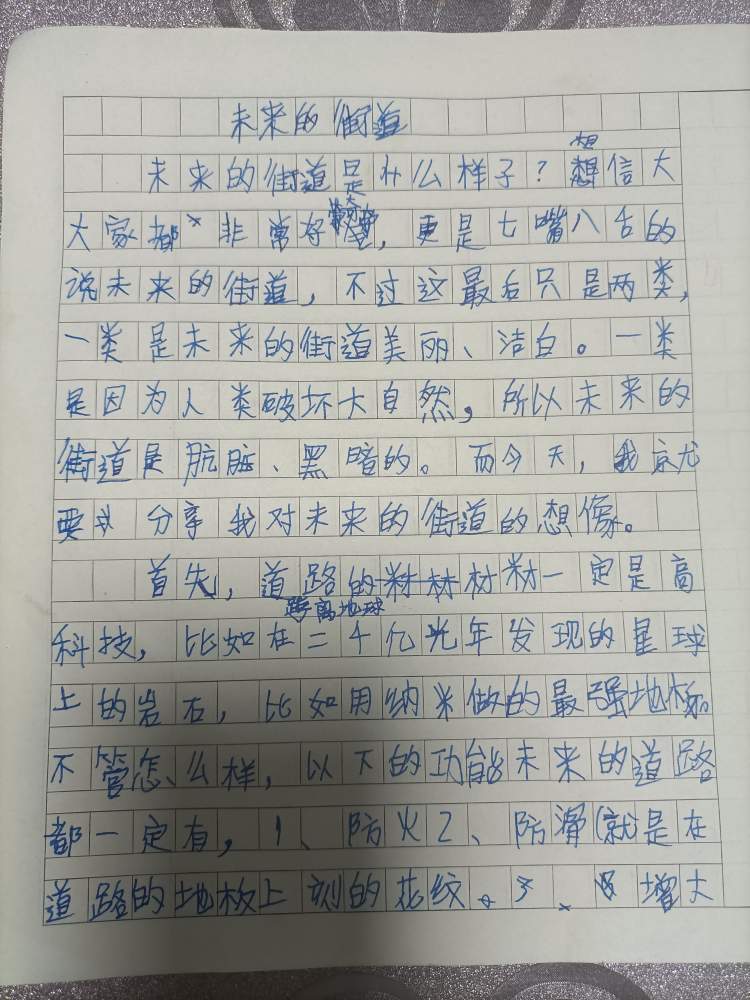 未来的街道
未来的街道是什么样子?想信大
大家都非常好,更是七嘴八舌的
说未来的街道,不过这最后只是两类,
一类是未来的街道美丽、洁白。一类
是因为人类破坏大自然,所以未来的
街道是肮脏、黑暗的。而今天,我就
要 分享我对未来的街道的想像。
首先,道路的材料一定是高
距离地球
科技,比如在二千亿光年发现的星球
上的岩石,比如用纳米做的最强地板
不管怎么样,以下的功能未来的道路
都一定有,1、防火2、防滑(就是在
道路的地板上刻的花纹。3、增大